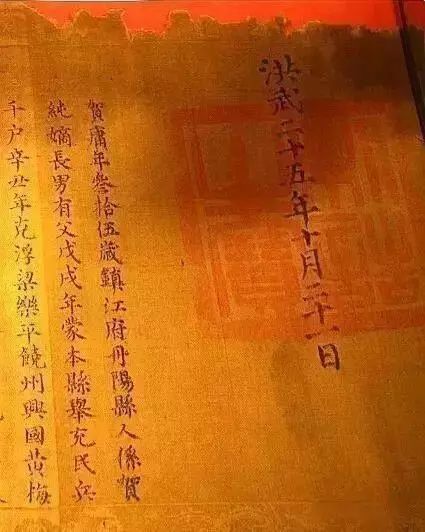 洪武二十五年十月二十一日
賀庸年叄拾伍歲鎮江府丹陽縣人係賀
純嫡長男有父戊戌年蒙本縣舉充民兵
千户辛丑年克浮梁樂平饒州興國黃梅